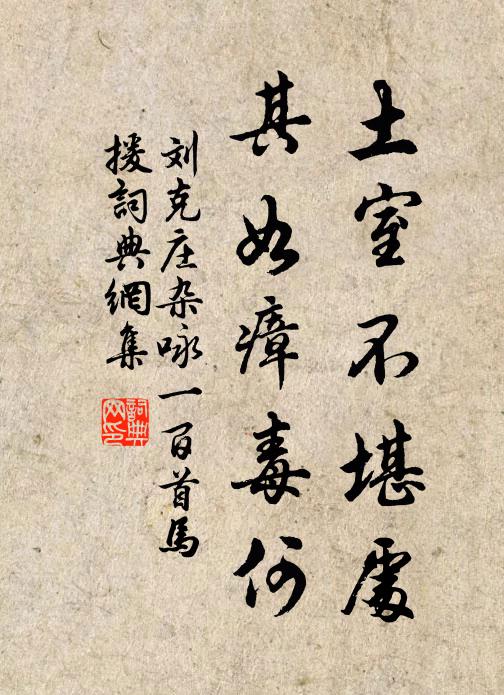 土室不堪處
其如瘴毒何
刘克庄杂咏一百首馬
援詞典網集
詞典
网印